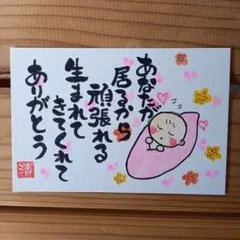 あなたが
居るから
頑張れる
生まれて
きてくれて
ありがとう